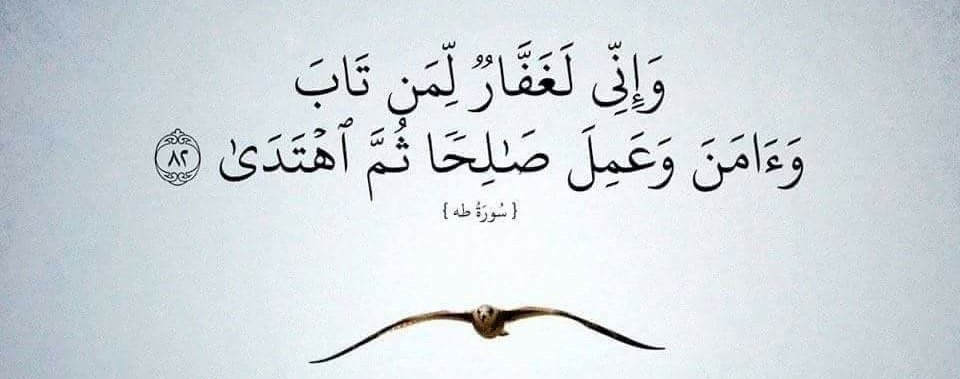 وَإِنِّى لَغَفَّارٌ لِّمَن تَابَ
وَءَامَنَ وَعَمِلَ صَـٰلِحًا ثُمَّ ٱهْتَدَىٰ ٨٢
{ سُورَةُ طه }